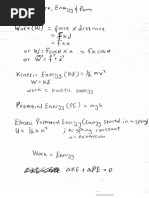 Energy & Power
Work(W) = force x distance
= F x d
= F x x
or W = F cos θ x x = Fx cos θ
or W = F · x
Kinetic Energy (KE) = ½ mv²
W = KE
work = kinetic energy
Potential Energy (PE) = mgh
Elastic Potential Energy (Energy stored in a spring)
U = ½ k x²
spring constant
x = extension
Work = Energy
ΔKE + ΔPE = 0